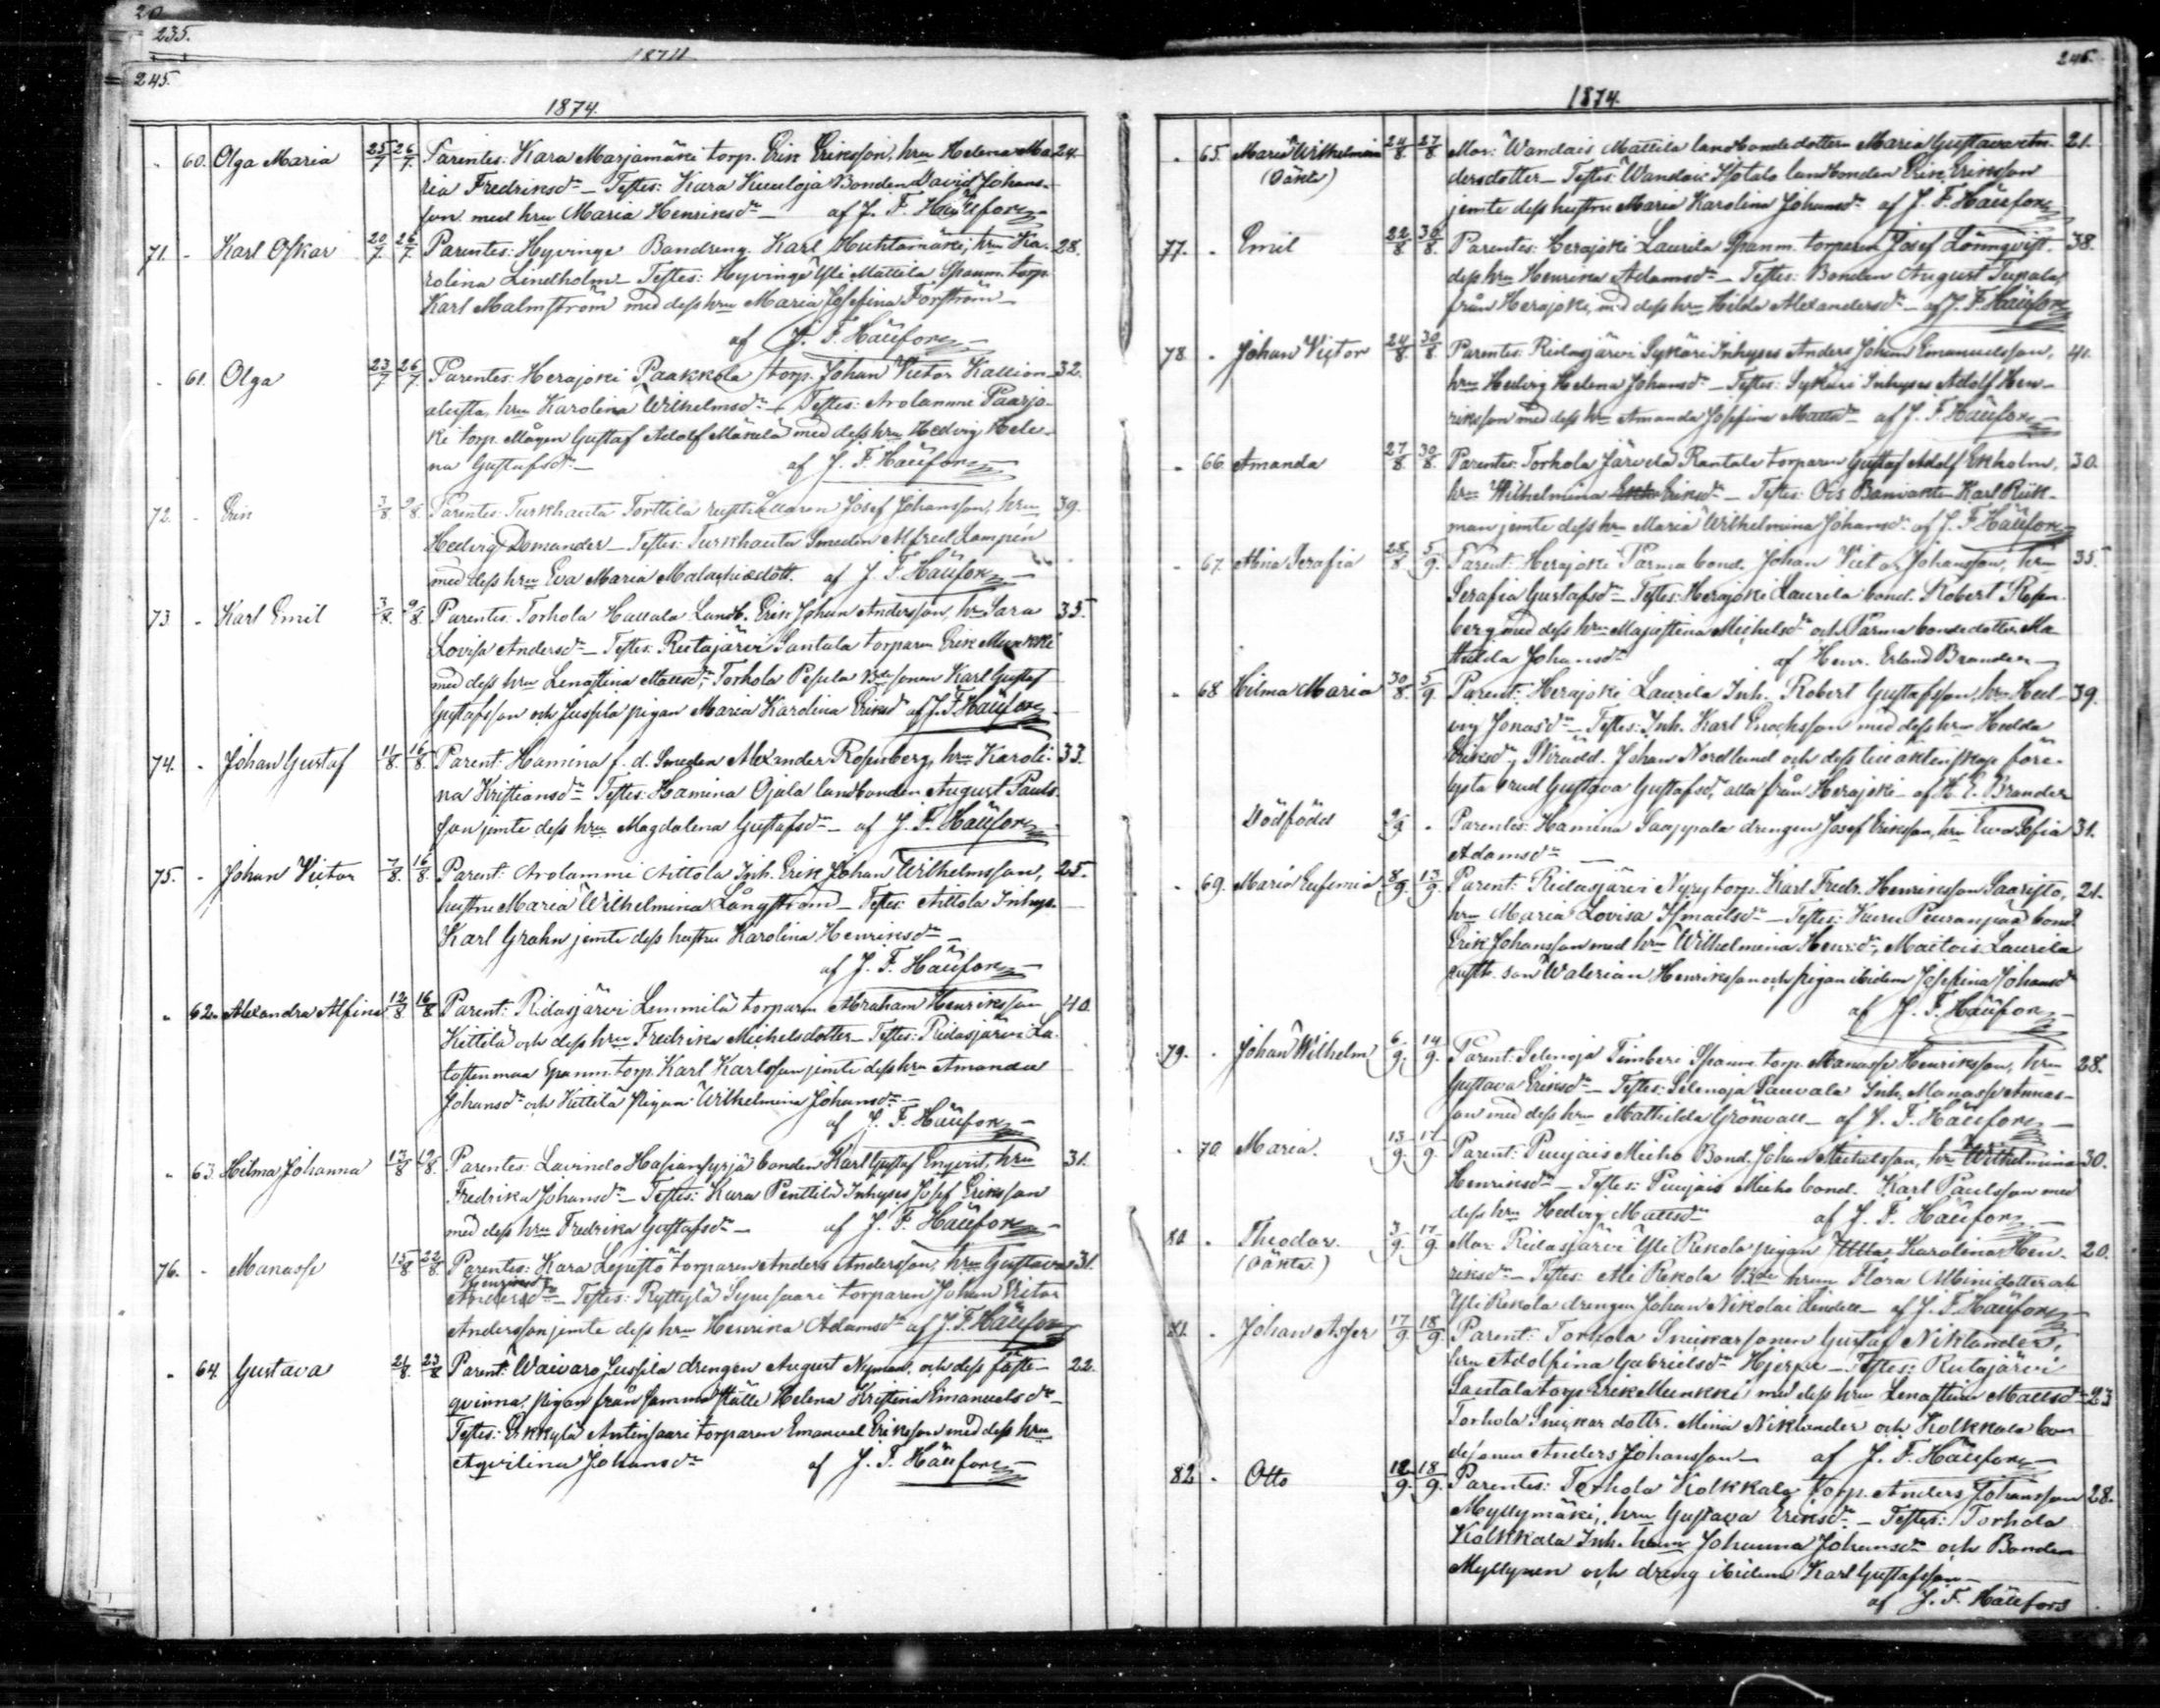 20
235.
1874
245.
1874.
60. Olga Maria 25/7 26/7. Parentes: Kara Marjamäki torp. Erik Eriksson, hru Helena Ma- 24.
ria Fredriksdr – Testes: Kara Kuuloja Bonden David Johans-
son med hru Maria Henriksdr – af J. F. Hällfors
71. Karl Oskar 20/7. 26/7 Parentes: Hyvinge Bandreng Karl Huhtamäki, hru Ka- 28.
rolina Lindholm – Testes: Hyvinge Yli Mattila Spanm. torp.
Karl Malmström med dess hru Maria Josefina Forström –
af J. F. Hällfors
61. Olga 23/7 26/7. Parentes: Herajoki Paakkola torp. Johan Victor Kallion- 32.
alusta, hru Karolina Wilhelmsdr – Testes: Arolammi Paarjo-
ki torp. Mågen Gustaf Adolf Mäkelä med dess hru Hedvig Hele-
na Gustafsdr – af J. F. Hällfors
72. Erik 3/8. 9/8. Parentes: Turkhauta Torttila rusthållaren Josef Johansson, hru 39.
Hedvig Domander – Testes: Turkhauta Smeden Alfred Lampén
med dess hru Eva Maria Malachiedott. af J. F. Hällfors
73. Karl Emil 3/8. 9/8. Parentes: Torhola Hallala Landb. Erik Johan Andersson, hru Sara 35.
Lovisa Andersdr – Testes: Rutajärvi Santala torparen Erik Munkki
med dess hru Lenastina Mattsdr, Torhola Pesula Bdesonen Karl Gustaf
Gustafsson och Jussila pigan Maria Karolina Eriksdr af J. F. Hällfors
74. Johan Gustaf 11/8. 16/8. Parent: Hamina f. d. Smeden Alexander Rosenberg, hru Karoli- 33.
na Kristiansdr Testes: Hamina Ojala landbonden August Pauls-
son jemte dess hru Magdalena Gustafsdr – af J. F. Hällfors
75. Johan Victor 7/8. 16/8. Parent: Arolammi Aittola Inh. Erik Johan Wilhelmsson, 25.
hustru Maria Wilhelmina Långström – Testes: Aittola Inhys.
Karl Grahn jemte dess hustru Karolina Henriksdr –
af J. F. Hällfors
62. Alexandra Alfina 12/8 16/8 Parent: Ridasjärvi Lemmilä torparen Abraham Henriksson 40.
Kittilä och dess hru Fredrika Michelsdotter – Testes: Ridasjärvi La-
tostenmaa Spanm. torp. Karl Karlsson jemte dess hru Amanda
Johansdr och Kittilä pigan Wilhelmina Johansdr –
af J. F. Hällfors
63. Hilma Johanna 13/8 19/8. Parentes: Lavinto Hasiansyrjä bonden Karl Gustaf Enqvist, hru 31.
Fredrika Johansdr – Testes: Kara Penttilä Inhyses Josef Eriksson
med dess hru Fredrika Gustafsdr – af J. F. Hällfors
76. Manasse 15/8 22/8. Parentes: Kara Lepistö torparen Anders Andersson, hru Gustava 31.
Henriksdr
Andersdr – Testes: Ryttylä Sipusaari torparen Johan Victor
Andersson jemte dess hru Henrika Adamsdr af J. F. Hällfors
64. Gustava 21/8. 23/8 Parent: Waivaro Jussila drengen August Nyman, och dess fäste- 22.
qvinna, pigan från samma ställe Helena Kristina Emanuelsdr –
Testes: Erkkylä Antinsaari torparen Emanuel Eriksson med dess hru
Aqvilina Johansdr af J. F. Hällfors
245.
1874.
65. Maria Wilhelmina 24/8 27/8 Mor: Wandais Mattila landbondedottern Maria Gustava An- 21.
(Oäkta) dersdotter – Testes: Wandais Isotalo landbonden Erik Eriksson
jemte dess hustru Maria Karolina Johansdr af J. F. Hällfors
77. Emil 22/8 30/8. Parentes: Herajoki Laurila Spanm. torparen Josef Lönnqvist 38.
dess hru Henrika Adamsdr – Testes: Bonden August Tupala
från Herajoki, med dess hru Hilda Alexandersdr – af J. F. Hällfors
78. Johan Victor 24/8. 30/8. Parentes: Ridasjärvi Sykäri Inhyses Anders Johan Emanuelsson, 41.
hru Hedvig Helena Johansdr – Testes: Sykäri Inhyses Adolf Hen-
riksson med dess hru Amanda Josefina Mattsdr af J. F. Hällfors
66. Amanda 27/8 30/8. Parentes: Torhola Järvelä Rantala torparen Gustaf Adolf Ekholm, 30.
hru Wilhelmina Eriksdr – Testes: Ois Banvakten Karl Riik-
man jemte dess hru Maria Wilhelmina Johansdr af J. F. Hällfors
67. Alina Serafia 28/8 5/9. Parent: Herajoki Parma bond. Johan Victor Johansson, hru 35.
Serafia Gustafsdr – Testes: Herajoki Laurila bond. Robert Rosen-
berg med dess hru Majastina Michelsdr och Parma bondedotter Ma-
thilda Johansdr af Henr. Erland Brander
68. Hilma Maria 30/8 5/9. Parent: Herajoki Laurila Inh. Robert Gustafsson, hru Hed- 39.
vig Jonasdr – Testes: Inh. Karl Enochsson med dess hru Hedda
Eriksdr, Skrädd. Johan Nordlund och dess till äktenskap före-
lysta brud Gustava Gustafsdr, alla från Herajoki – af H. E. Brander
Dödfödd 9/9 Parentes: Hamina Saappala drengen Josef Eriksson, hru Eva Sofia 31.
Adamsdr –
69. Maria Eufemia 8/9. 13/9. Parent: Ridasjärvi Nyry torp. Karl Fredr. Henriksson Saaristo, 21.
hru Maria Lovisa Ismaelsdr – Testes: Kuru Peuranpää bond.
Erik Johansson med hru Wilhelmina Henrdr, Maitois Laurila
rusth. son Walerian Henriksson och pigan ibidem Josefina Johansdr
af J. F. Hällfors
79. Johan Wilhelm 6/9. 14/9. Parent: Selenoja Timberi Spanm. torp. Manasse Henriksson, hru 28.
Gustava Eriksdr – Testes: Selenoja Pauvala Inh. Manasse Annas-
son med dess hru Mathilda Grönvall – af J. F. Hällfors
70. Maria. 13/9. 17/9. Parent: Puujais Mieho Bond. Johan Michelsson, hru Wilhelmina 30.
Henriksdr – Testes: Puujais Mieho bond. Karl Paulsson med
dess hru Hedvig Mattsdr af J. F. Hällfors
80. Theodor. 3/9. 17/9 Mor: Ridasjärvi Yli Rekola pigan Ulla Karolina Hen- 20.
(Oäkta) riksdr – Testes: Ali Rekola Bde hrun Flora Alinidotter och
Yli Rekola drengen Johan Nikolai Lindell – af J. F. Hällfors
81. Johan Asser 17/9. 18/9. Parent: Torhola Snickarsonen Gustaf Niklander,
hru Adolfina Gabrielsdr Hjerpe – Testes: Rutajärvi
Santala torp. Erik Munkki med dess hru Lenastina Mattsdr 23
Torhola Snickar dottr. Mina Niklander och Kolkkala bon-
desonen Anders Johansson – af J. F. Hällfors
82. Otto 12/9. 18/9. Parentes: Torhola Kolkkala torp. Anders Johansson 28.
Myllymäki, hru Gustava Eriksdr – Testes: Torhola
Kolkkala Inh. hrun Johanna Johansdr och Bonden
Myllynen och dräng ibidem Karl Gustafsson –
af J. F. Hällfors